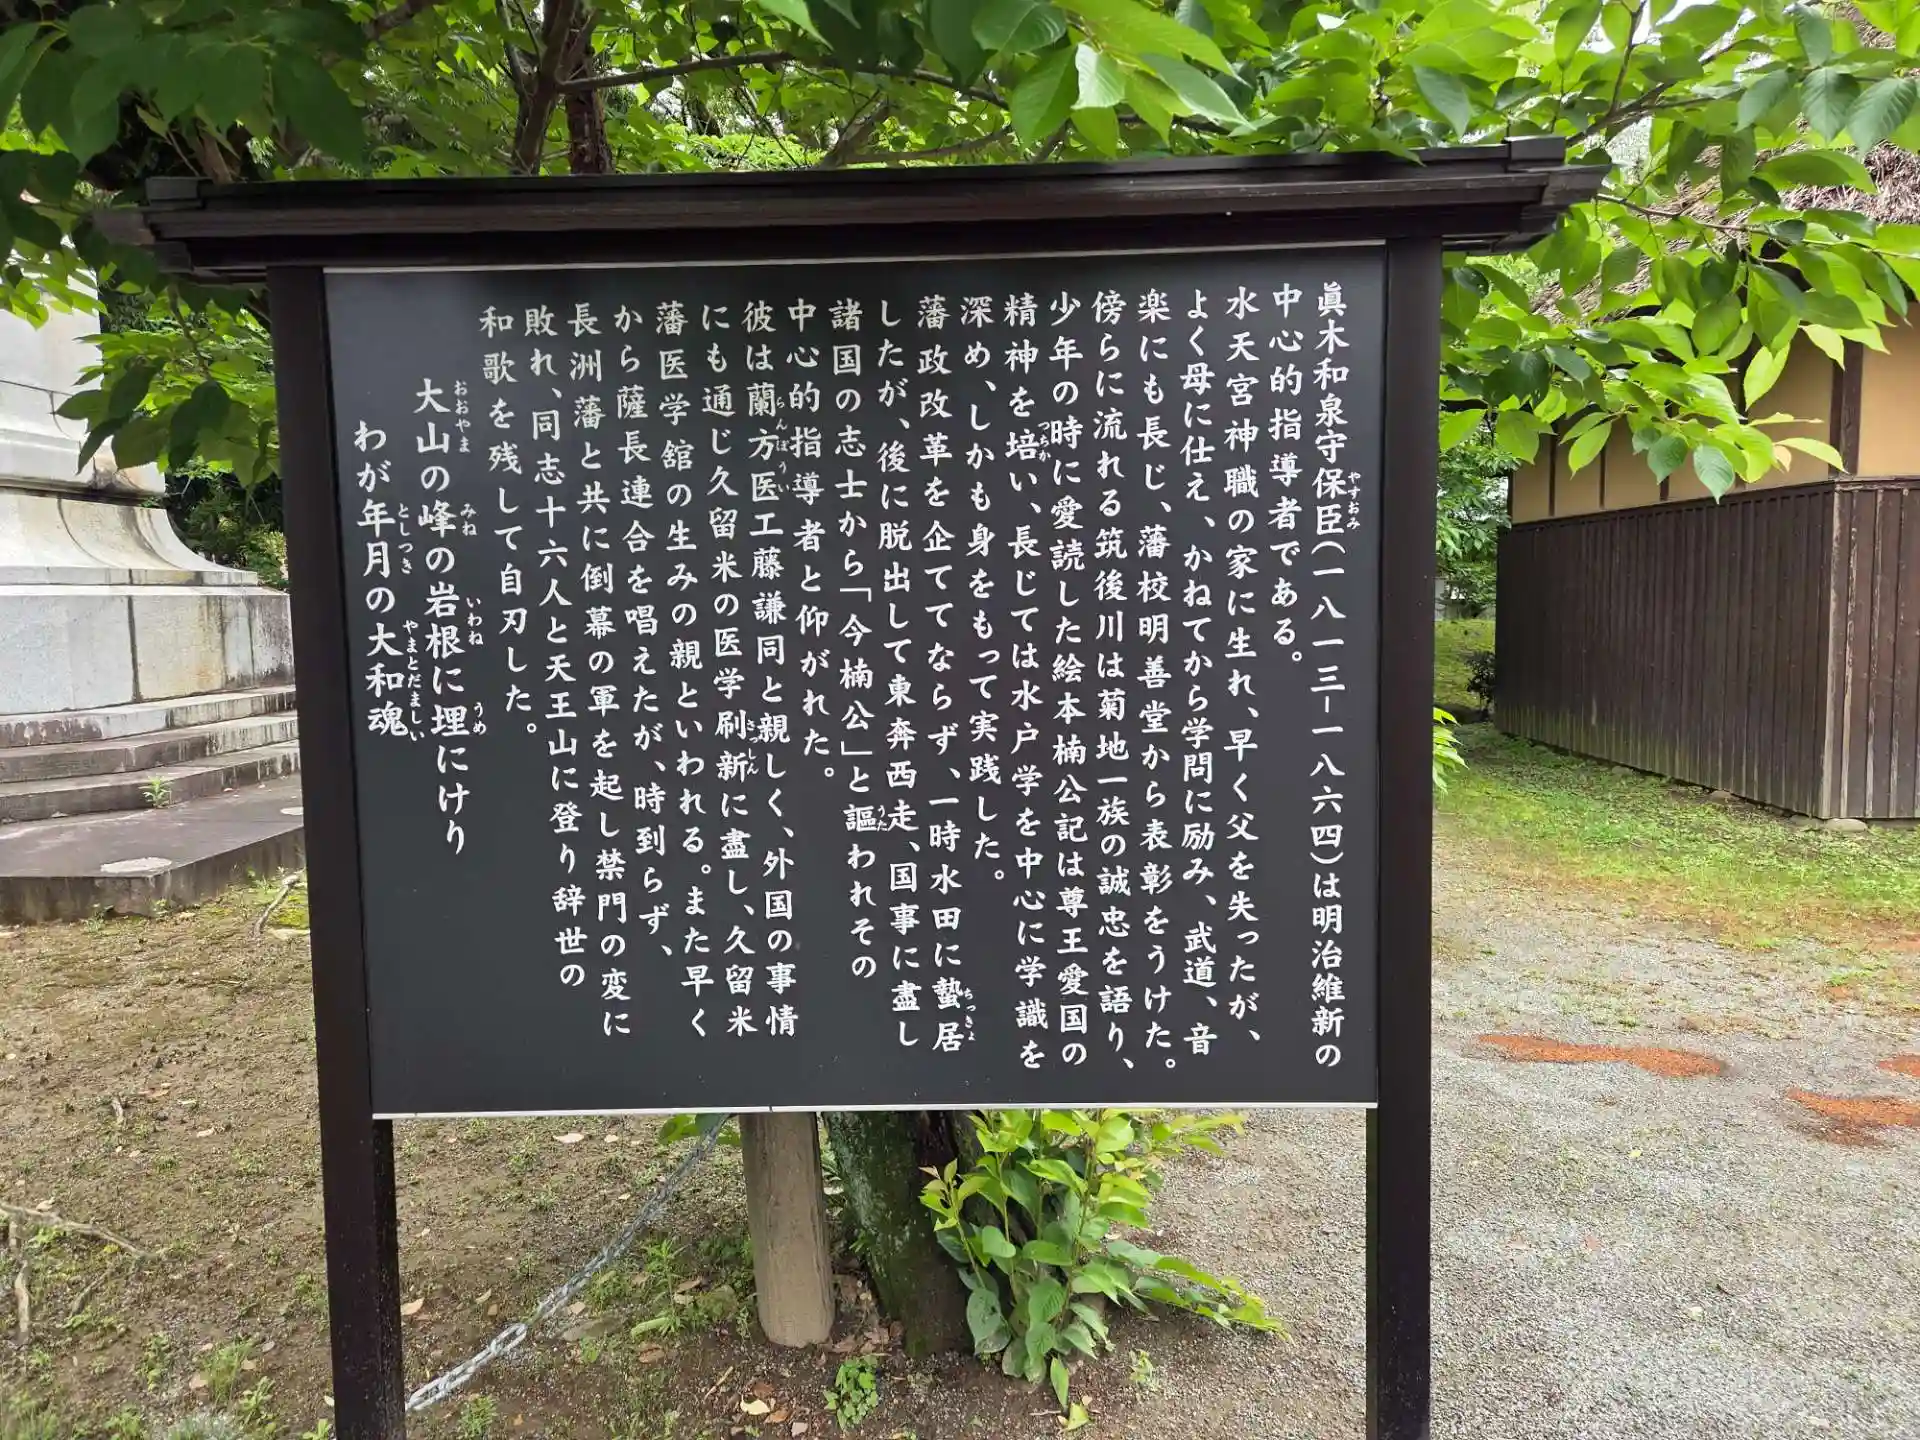 眞木和泉守保臣（一八一三－一八六四）は明治維新の
中心的指導者である。
水天宮神職の家に生れ、早く父を失ったが、
よく母に仕え、かねてから学問に励み、武道、音
楽にも長じ、藩校明善堂から表彰をうけた。
傍らに流れる筑後川は菊地一族の誠忠を語り、
少年の時に愛読した絵本楠公記は尊王愛国の
精神を培い、長じては水戸学を中心に学識を
深め、しかも身をもって実践した。
藩政改革を企ててならず、一時水田に蟄居
したが、後に脱出して東奔西走、国事に盡し
諸国の志士から「今楠公」と謳われその
中心的指導者と仰がれた。
彼は蘭方医工藤謙同と親しく、外国の事情
にも通じ久留米の医学刷新に盡し、久留米
藩医学舘の生みの親といわれる。また早く
から薩長連合を唱えたが、時到らず、
長洲藩と共に倒幕の軍を起し禁門の変に
敗れ、同志十六人と天王山に登り辞世の
和歌を残して自刃した。
大山の峰の岩根に埋にけり
わが年月の大和魂
やすおみ
つちか
ちっきょ
うた
らんぽうい
さっしん
おおやま
みね
いわね
うめ
としつき
やまとだましい